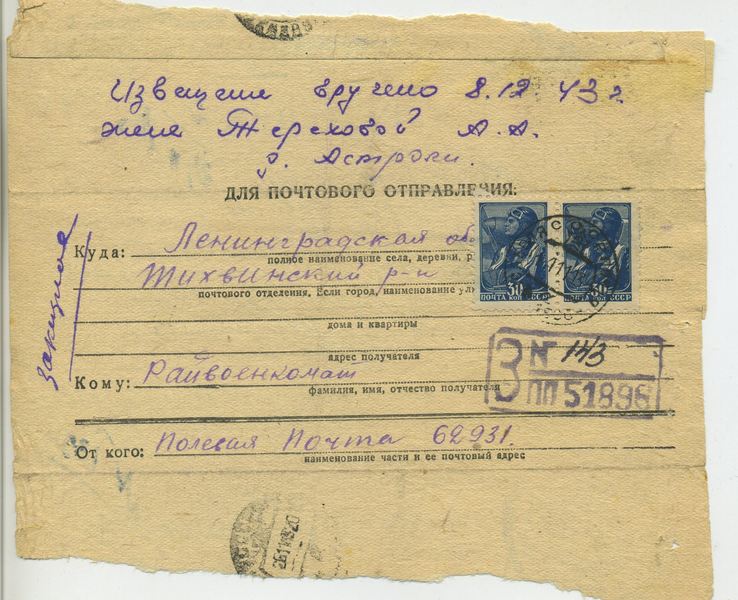 Извещение вручено 8.12.43 г
жене Тереховой А.А.
д. Астрачи.
ДЛЯ ПОЧТОВОГО ОТПРАВЛЕНИЯ:
заказное
Куда: Ленинградская обл
полное наименование села, деревни, р
Тихвинский р-н
почтового отделения. Если город, наименование ули
дома и квартиры
адрес получателя
Кому: Райвоенкомат
фамилия, имя, отчество получателя
От кого: Полевая Почта 62931.
наименование части и ее почтовый адрес
30 ПОЧТА КОП СССР
30 ПОЧТА КОП СССР
З № 143
ПП 51898
261143